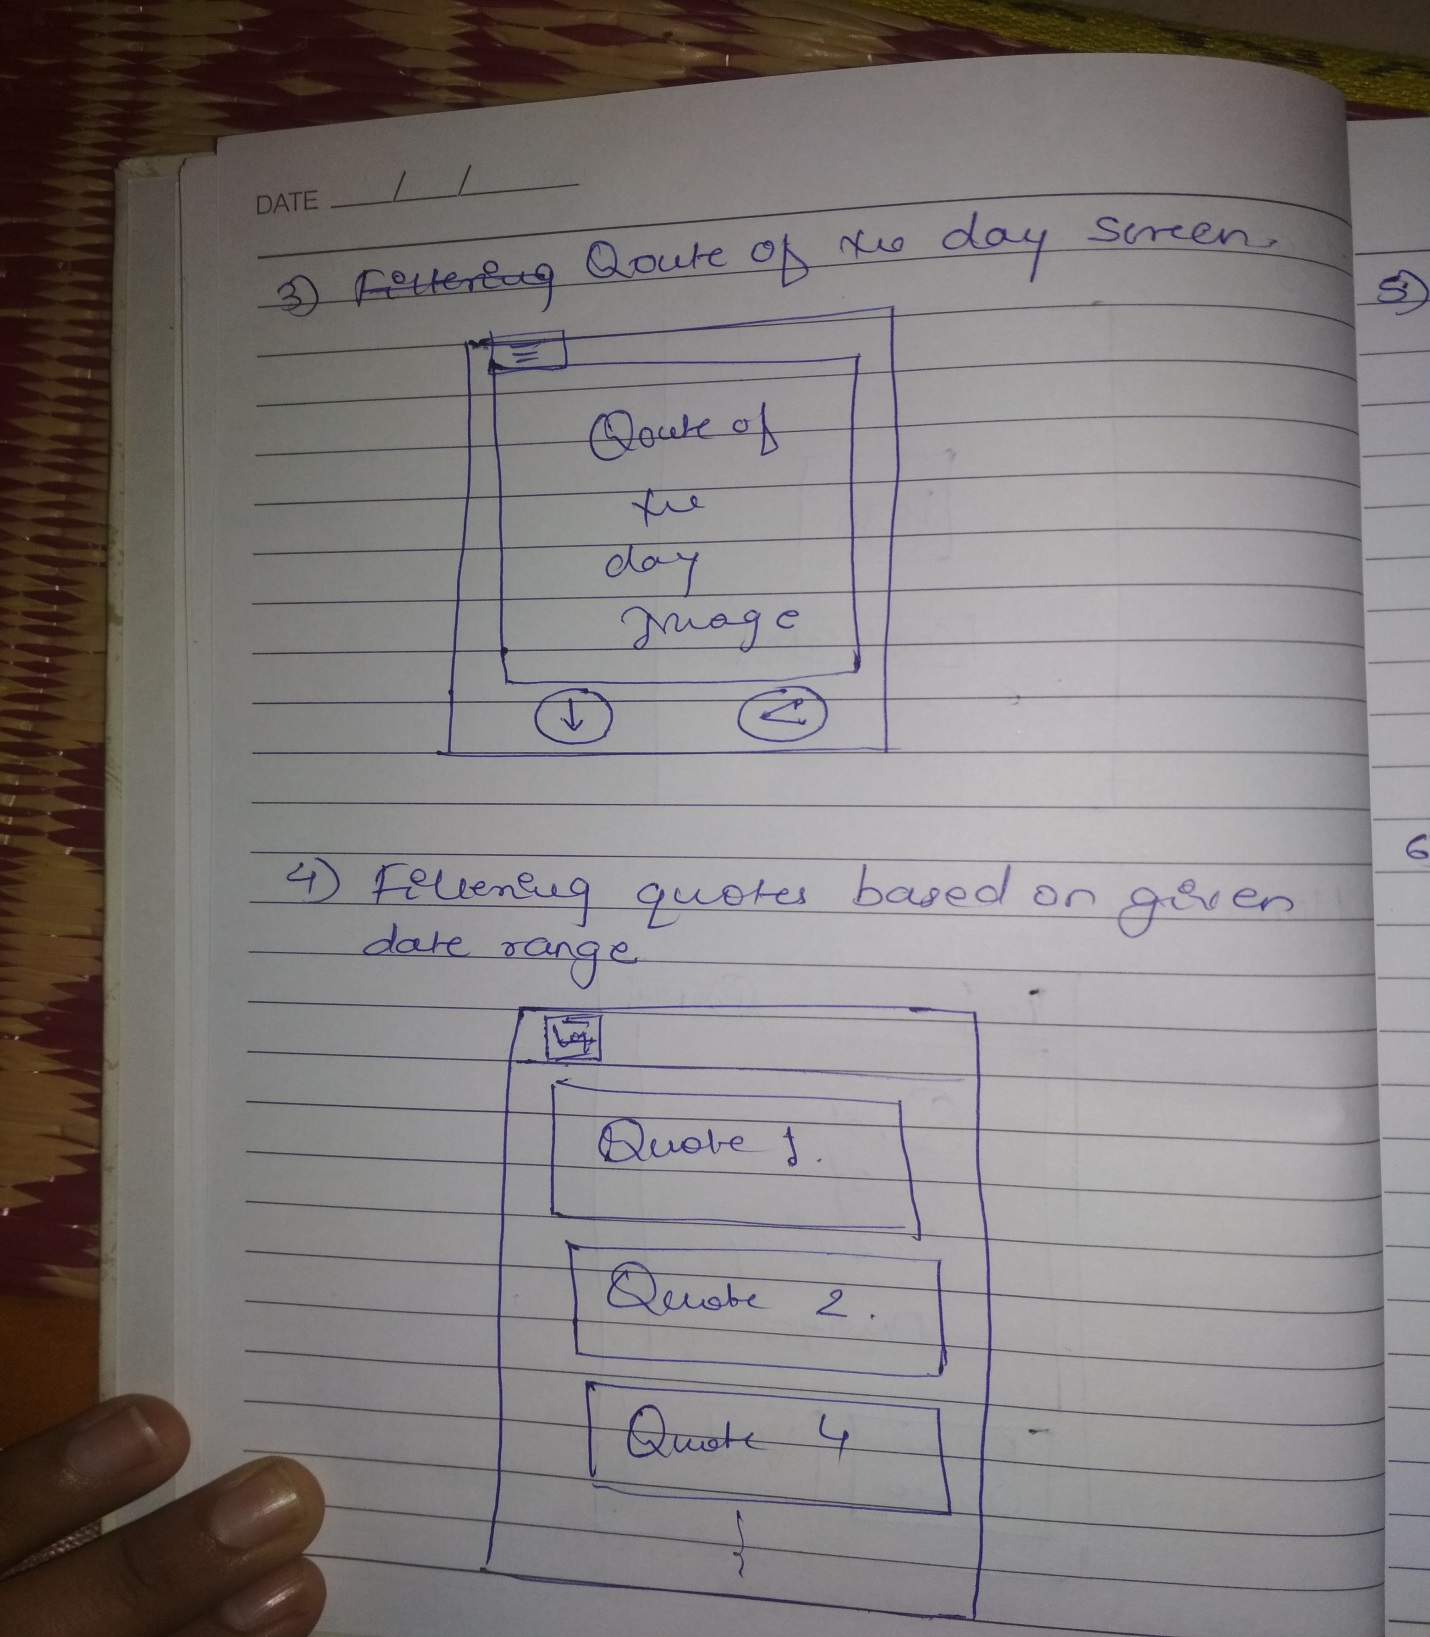 DATE / /
3) Filtering Qoute of the day Screen.
5)
Qoute of
the
day
Image
4) Filtering quotes based on given
6
date range
Quote 1.
Quote 2.
Quote 4